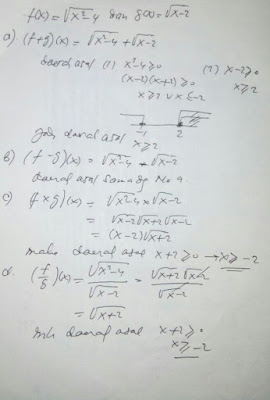 f(x) = √x²-4 dan g(x) = √x-2
a) (f+g)(x) = √x²-4 + √x-2
daerah asal (1) x²-4 ≥ 0 (2) x-2 ≥ 0
(x-2)(x+2) ≥ 0 x ≥ 2
x ≥ 2 v x ≤ -2
-1 2
jadi daerah asal
x ≥ 2
b) (f-g)(x) = √x²-4 - √x-2
daerah asal sama dg No a.
c) (f×g)(x) = √x²-4 × √x-2
= √x-2 √x+2 √x-2
= (x-2)√x+2
maka daerah asal x+2 ≥ 0 → x ≥ -2
d. (f/g)(x) = √x²-4 / √x-2 = √x+2 √x-2 / √x-2
= √x+2
mk daerah asal x+2 ≥ 0
x ≥ -2